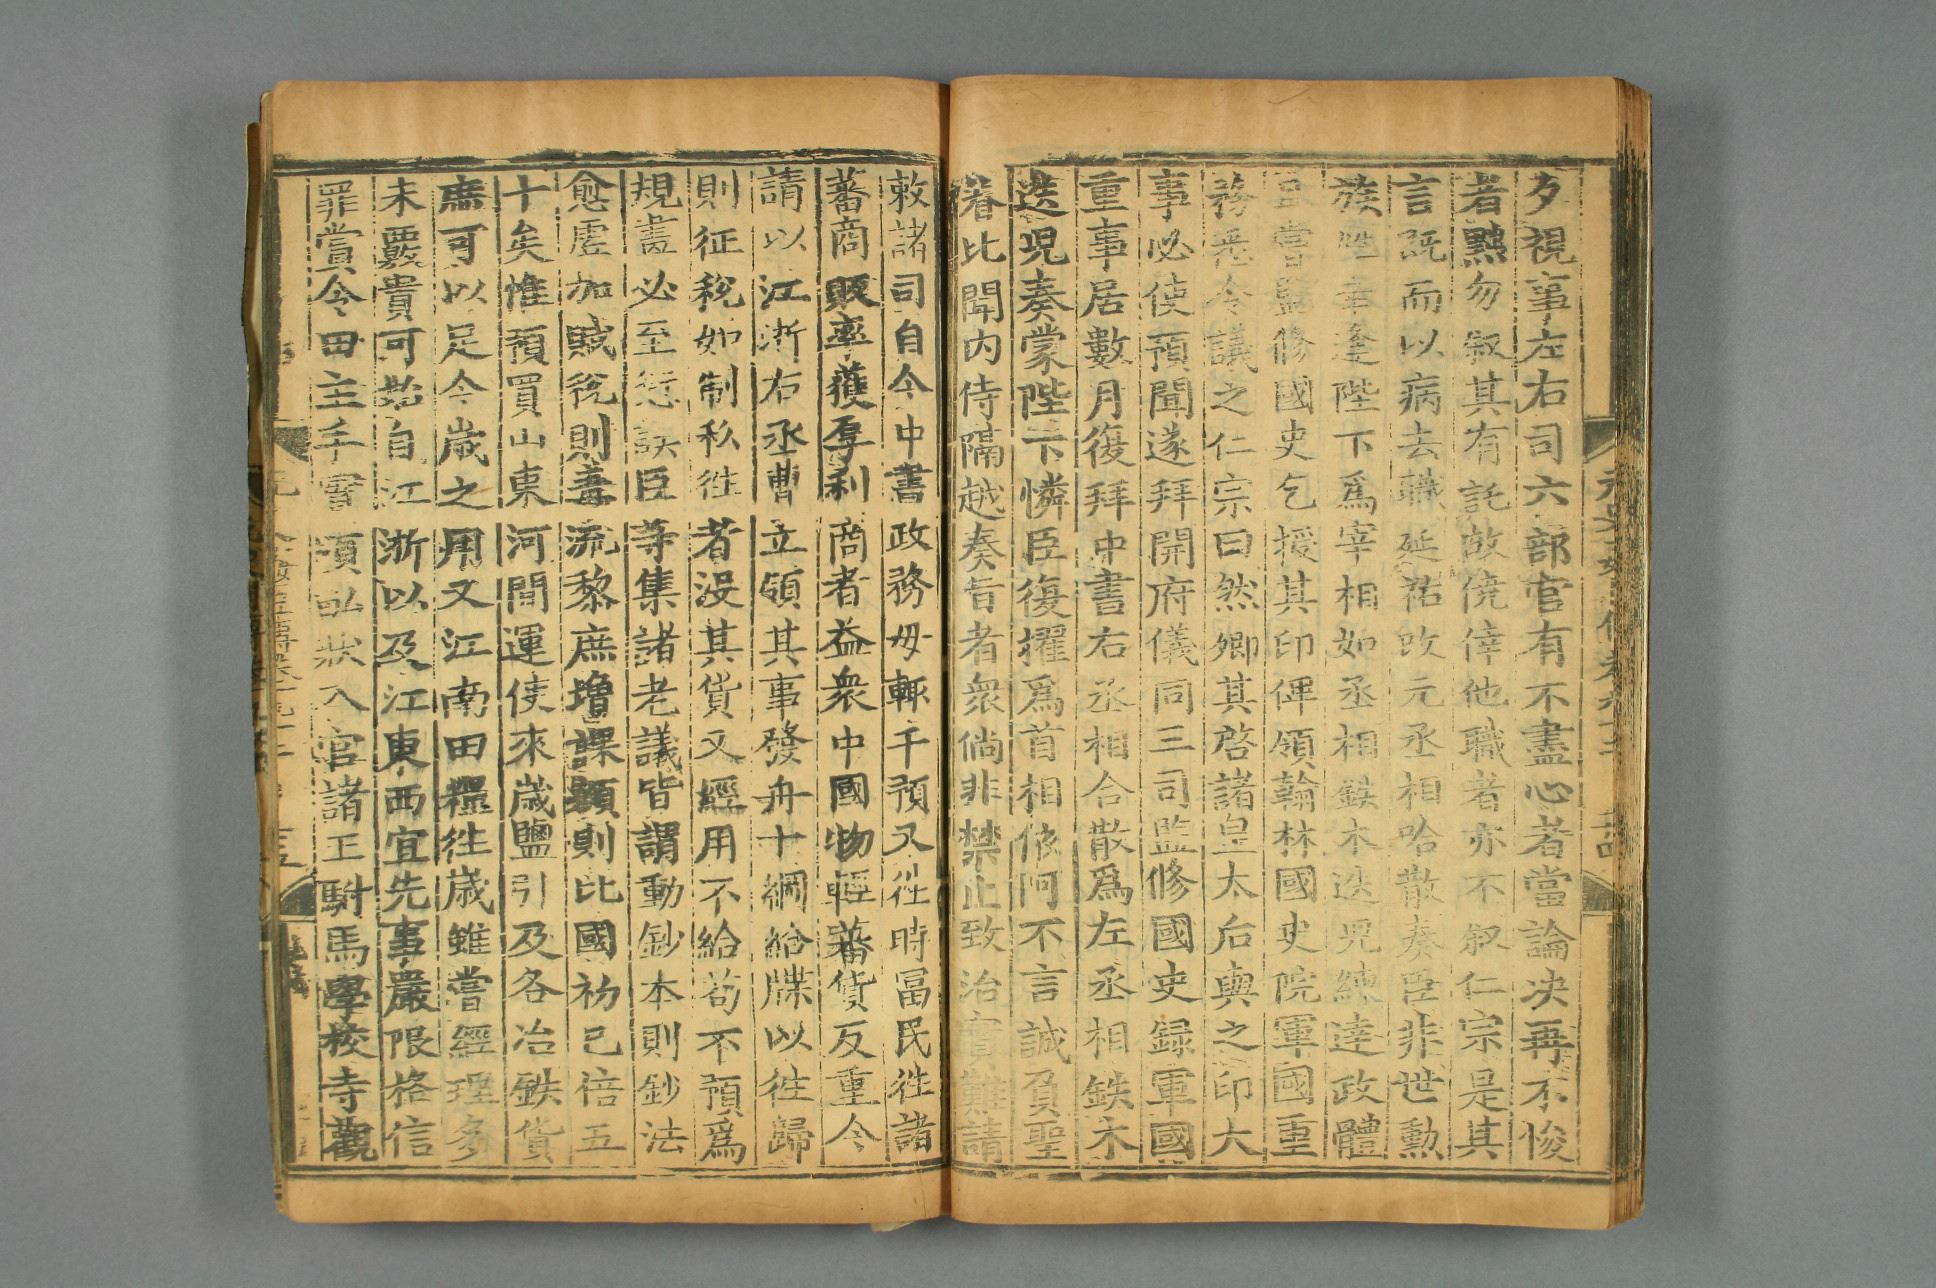 夕視事左右司六部官有不盡心者當論决再不悛
者黜勿叙其有託故僥倖他職者亦不叙仁宗是其
言既而以病去職延祐改元丞相哈散奏臣非世勳
族姓幸逢陛下爲宰相如丞相鉄木迭兒練達政體
且嘗監修國史乞授其印俾領翰林國史院軍國重
務悉令議之仁宗曰然卿其啓諸皇太后與之印大
事必使預聞遂拜開府儀同三司監修國史録軍國
重事居數月復拜中書右丞相合散爲左丞相鉄木
迭兒奏蒙陛下憐臣復擢爲首相依阿不言誠負聖
眷比聞内侍隔越奏旨者衆倘非禁止致治實難請
敕諸司自今中書政務毋輒干預又徃時冨民徃諸
蕃商販率獲厚利商者益衆中國物輕蕃貨反重今
請以江浙右丞曹立領其事發舟十綱給牒以徃歸
則征稅如制私徃者沒其貨又經用不給苟不預爲
規畫必至愆誤臣等集諸老議皆謂動鈔本則鈔法
愈虛加賦稅則毒流黎庶增課額則比國初已倍五
十矣惟預買山東河間運使來歲鹽引及各冶鉄貨
庶可以足今歲之用又江南田糧徃歲雖嘗經理多
未覈實可始自江浙以及江東西宜先事嚴限格信
罪賞令田主手實頃畝狀入官諸王駙馬學校寺觀